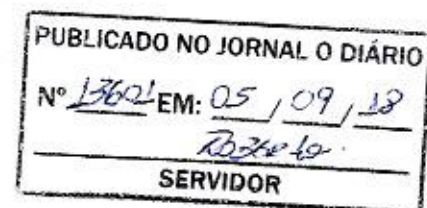 PUBLICADO NO JORNAL O DIÁRIO
Nº 13601 EM: 05 / 09 / 18
SERVIDOR